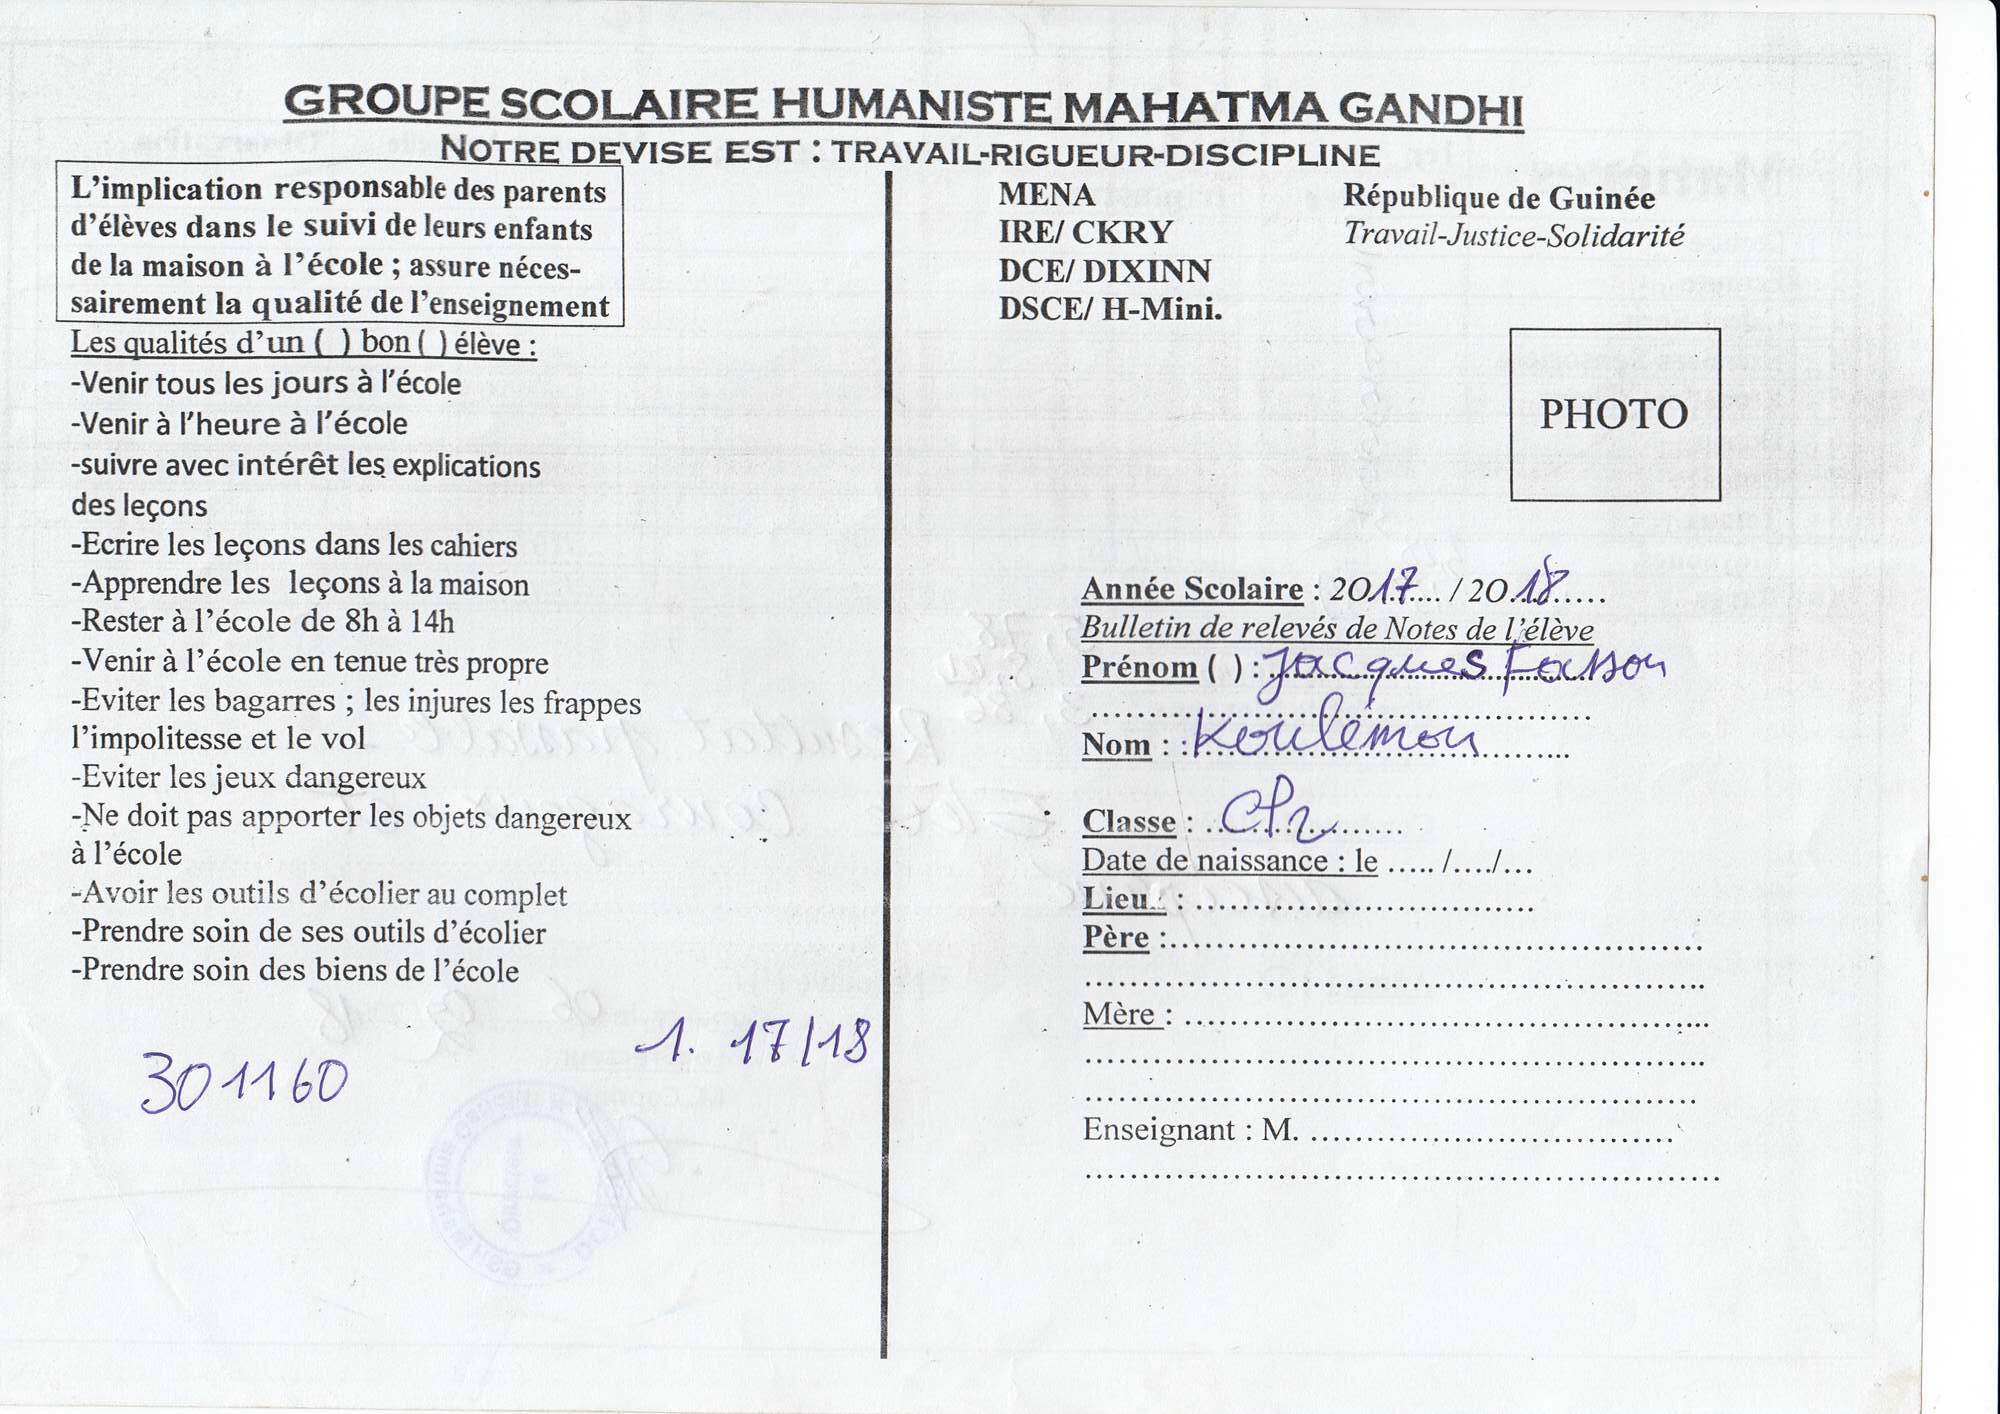 GROUPE SCOLAIRE HUMANISTE MAHATMA GANDHI
NOTRE DEVISE EST : TRAVAIL-RIGUEUR-DISCIPLINE
L'implication responsable des parents
d'élèves dans le suivi de leurs enfants
de la maison à l'école ; assure néces-
sairement la qualité de l'enseignement
Les qualités d'un ( ) bon ( ) élève :
-Venir tous les jours à l'école
-Venir à l'heure à l'école
-suivre avec intérêt les explications
des leçons
-Ecrire les leçons dans les cahiers
-Apprendre les leçons à la maison
-Rester à l'école de 8h à 14h
-Venir à l'école en tenue très propre
-Eviter les bagarres ; les injures les frappes
l'impolitesse et le vol
-Eviter les jeux dangereux
-Ne doit pas apporter les objets dangereux
à l'école
-Avoir les outils d'écolier au complet
-Prendre soin de ses outils d'écolier
-Prendre soin des biens de l'école
1. 17/18
301160
MENA République de Guinée
IRE/ CKRY Travail-Justice-Solidarité
DCE/ DIXINN
DSCE/ H-Mini.
PHOTO
Année Scolaire : 2017.... / 2018.....
Bulletin de relevés de Notes de l'élève
Prénom ( ) : Jacques Fasson
Nom : Koulémou
Classe : CP2
Date de naissance : le ..... /..../...
Lieu : ....................................
Père :....................................
Mère : ....................................
Enseignant : M. ....................................